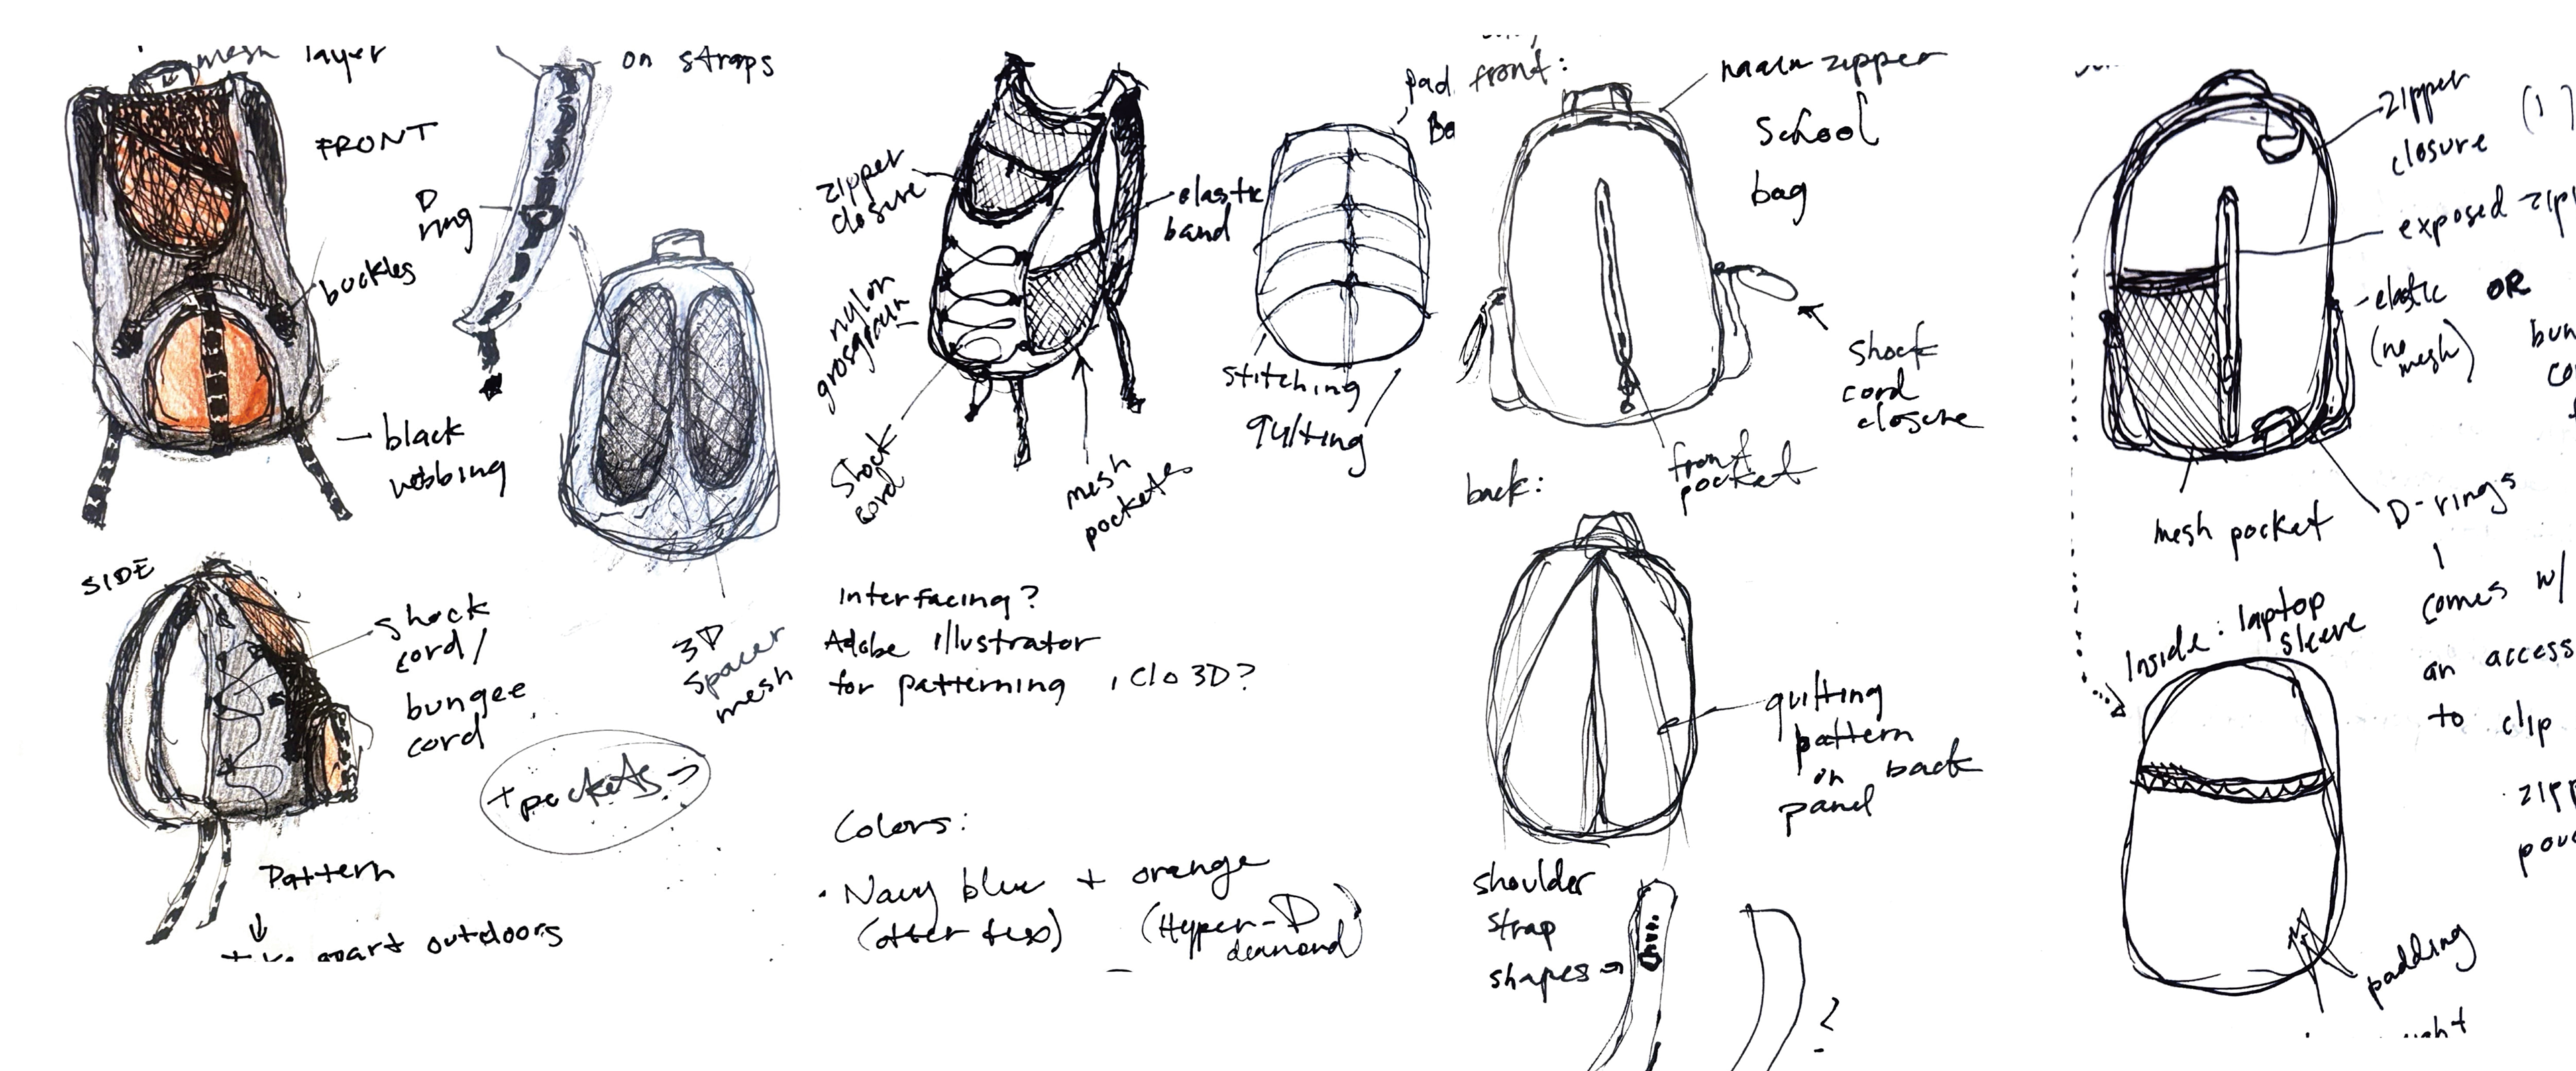 mesh layer
FRONT
buckles
black
webbing
on straps
D
ring
SIDE
shock
cord/
bungee
cord
3D
spacer
mesh
+ pockets
Pattern
apart outdoors
zipper
closure
elastic
band
nylon
grosgrain
shock
cord
mesh
pockets
pad
stitching
quilting
Interfacing?
Adobe Illustrator
for patterning, Clo 3D?
Colors:
• Navy blue + orange
(Hyper-D
front:
main zipper
School
bag
shock
cord
closure
front
pocket
back:
quilting
pattern
on back
panel
shoulder
strap
shapes →
?
zipper
closure
exposed
elastic OR
(no
mesh)
mesh pocket
D-rings
comes w/
an
to clip
Inside: laptop
sleeve
padding